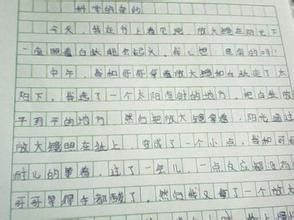 科学的奇妙
今天,我在书上看见,放大镜在阳光下
一直照着白纸能起火,我心想:是真的吗?
中午,我和哥哥拿着放大镜和白纸走了太
阳下,我选了一个太阳直射的地方,把白纸放
子的地方,然后把放大镜拿着,阳光通过
放大镜照在纸上,变成了一个小点,我和哥
耐心的等着,过了一会儿,一点反应都没有
哥哥等得都,然后我又拿了一个放大